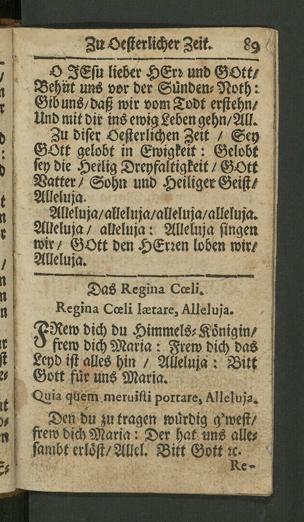 Zu Oesterlicher Zeit. 89
O JEsu lieber HErr und GOtt/
Behüt uns vor der Sünden-Noth:
Gib uns/ daß wir vom Todt erstehn/
Und mit dir ins ewig Leben gehn/ All.
Zu diser Oesterlichen Zeit / Sey
GOtt gelobt in Ewigkeit: Gelobt
sey die Heilig Dreyfaltigkeit / GOtt
Vatter/ Sohn und Heiliger Geist/
Alleluja.
Alleluja/alleluja/alleluja/alleluja.
Alleluja / alleluja: Alleluja singen
wir/ GOtt den HErren loben wir/
Alleluja.
Das Regina Cœli.
Regina Cœli lætare, Alleluja.
FRew dich du Himmels-Königin/
frew dich Maria: Frew dich das
Leyd ist alles hin / Alleluja: Bitt
Gott für uns Maria.
Quia quem meruisti portare, Alleluja.
Den du zu tragen würdig g'west/
frew dich Maria: Der hat uns alle-
sambt erlöst/ Allel. Bitt Gott ꝛc.
Re-